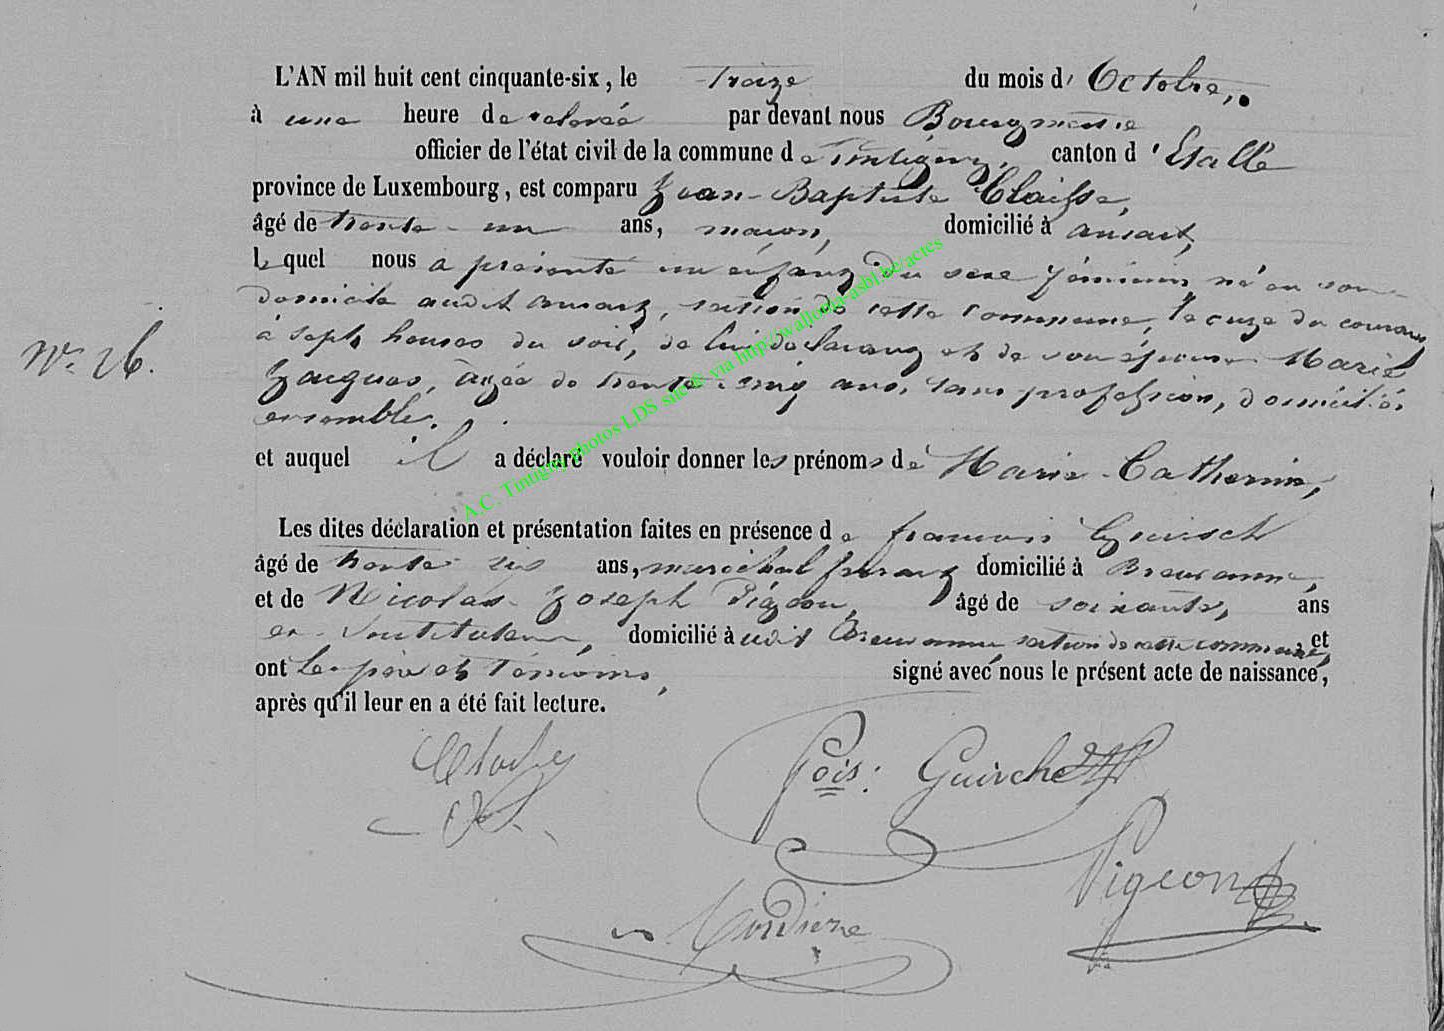 L'AN mil huit cent cinquante-six, le Treize du mois d' Octobre,
à une heure de relevée par devant nous Bourgmestre
officier de l'état civil de la commune de Tintigny, canton d'Etalle
province de Luxembourg, est comparu Jean-Baptiste Claisse,
âgé de trente-un ans, maçon, domicilié à ansart,
lequel nous a présenté un enfant du sexe féminin né en son
domicile audit ansart, section de cette commune, le onze du courant
à sept heures du soir, de lui déclarant et de son épouse Marie
N° 26.
Jacques, âgée de trente-cinq ans, sans profession, domiciliés
ensemble.
et auquel il a déclaré vouloir donner les prénoms de Marie-Catherine,
Les dites déclaration et présentation faites en présence de françois
âgé de trente six ans, maréchal ferrant domicilié à Breuvanne,
et de Nicolas Joseph Pigeon, âgé de soixante, ans
domicilié à udit Breuvanne section de cette commune, et
ont Le père et Témoins, signé avec nous le présent acte de naissance,
après qu'il leur en a été fait lecture.
Fçois: Guirche
Pigeon
A.C. Tintigny photos LDS site & via http://wallonia-asbl.be/actes